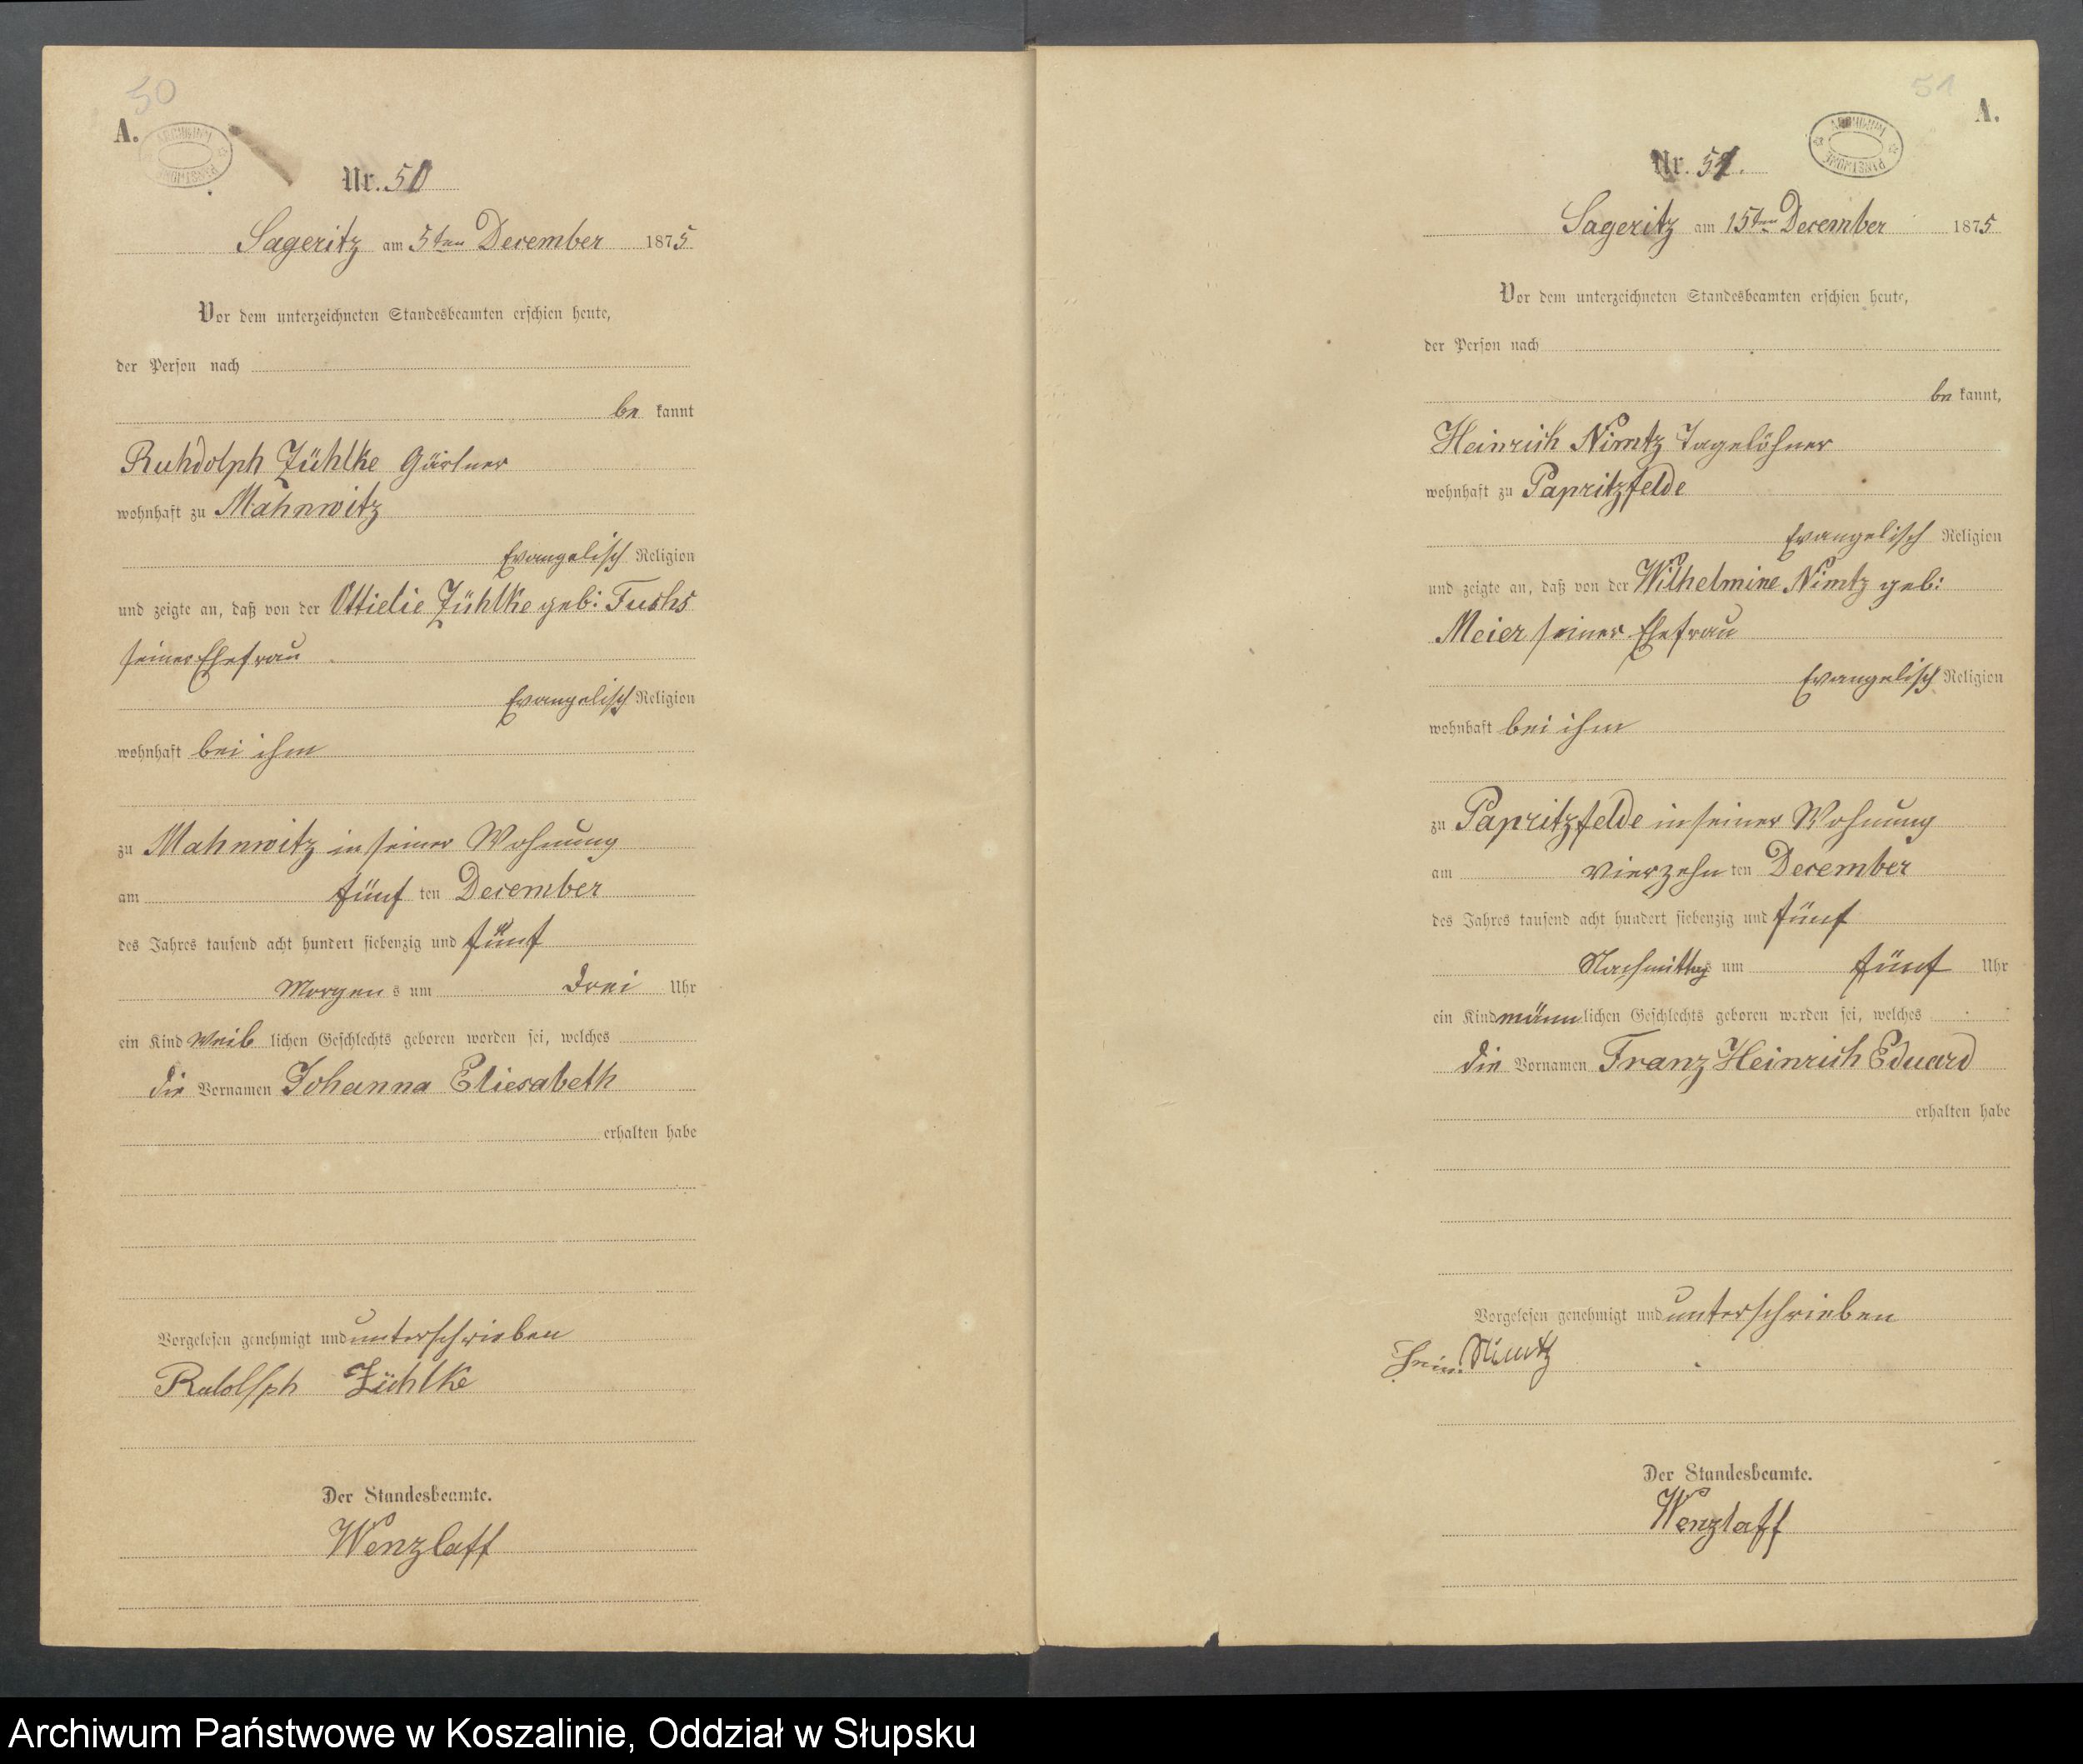 50
A.
ARCHIWUM PAŃSTWOWE
Nr. 50
Sageritz am 5ten December 1875
Vor dem unterzeichneten Standesbeamten erschien heute,
der Person nach
be kannt
Ruhdolph Zühlke Gärtner
wohnhaft zu Mahnwitz
Evangelisch Religion
und zeigte an, daß von der Ottielie Zühlke geb: Fuchs
seiner Ehefrau
Evangelisch Religion
wohnhaft bei ihm
zu Mahnwitz in seiner Wohnung
am fünf ten December
des Jahres tausend acht hundert siebenzig und fünf
Morgen s um drei Uhr
ein Kind weib lichen Geschlechts geboren worden sei, welches
die Vornamen Johanna Eliesabeth
erhalten habe
Vorgelesen genehmigt und unterschrieben
Rudolph Zühlke
Der Standesbeamte.
Wenzlaff
51
A.
ARCHIWUM PAŃSTWOWE
Nr. 51.
Sageritz am 15ten December 1875
Vor dem unterzeichneten Standesbeamten erschien heute,
der Person nach
be kannt,
Heinrich Nimtz Tagelöhner
wohnhaft zu Papritzfelde
Evangelisch Religion
und zeigte an, daß von der Wilhelmine Nimtz geb:
Meier seiner Ehefrau
Evangelisch Religion
wohnhaft bei ihm
zu Papritzfelde in seiner Wohnung
am vierzehn ten December
des Jahres tausend acht hundert siebenzig und fünf
Nachmittags um fünf Uhr
ein Kind männ lichen Geschlechts geboren worden sei, welches
die Vornamen Franz Heinrich Eduard
erhalten habe
Vorgelesen genehmigt und unterschrieben
Hein. Nimtz
Der Standesbeamte.
Wenzlaff
Archiwum Państwowe w Koszalinie, Oddział w Słupsku